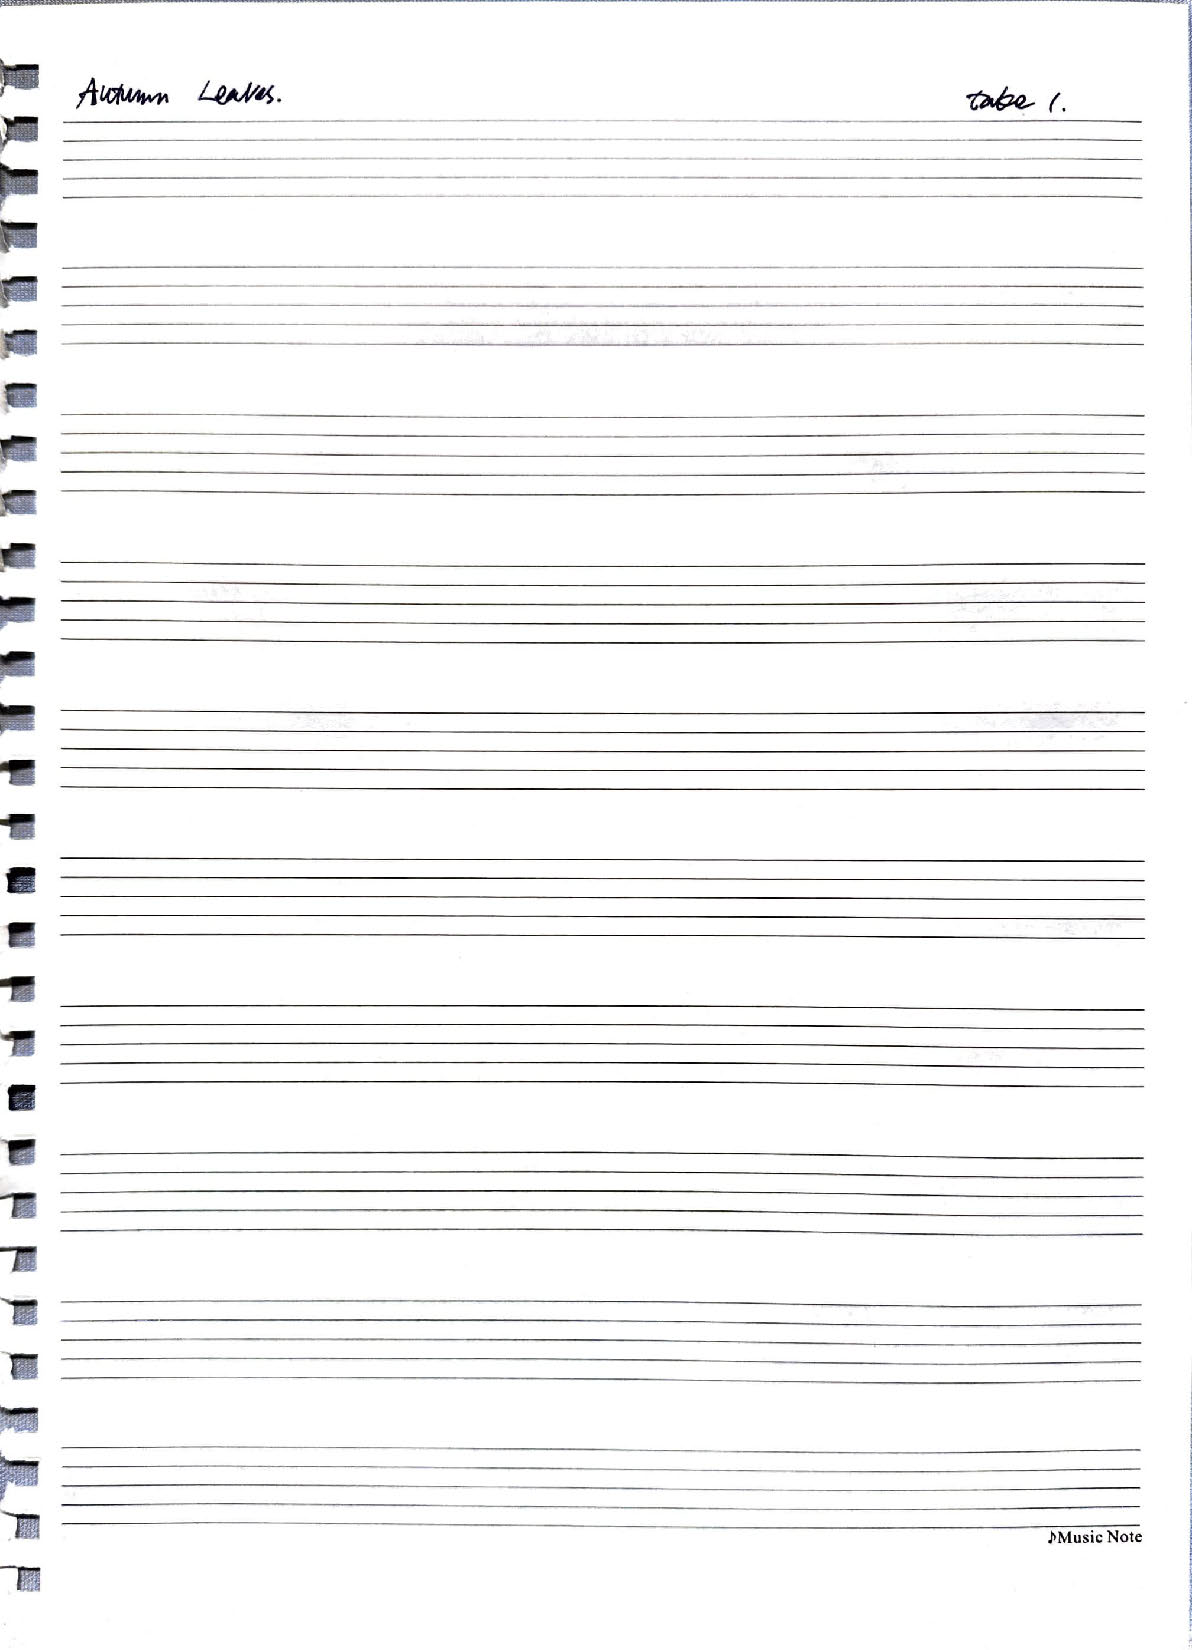 Autumn Leaves. take 1.
♪Music Note